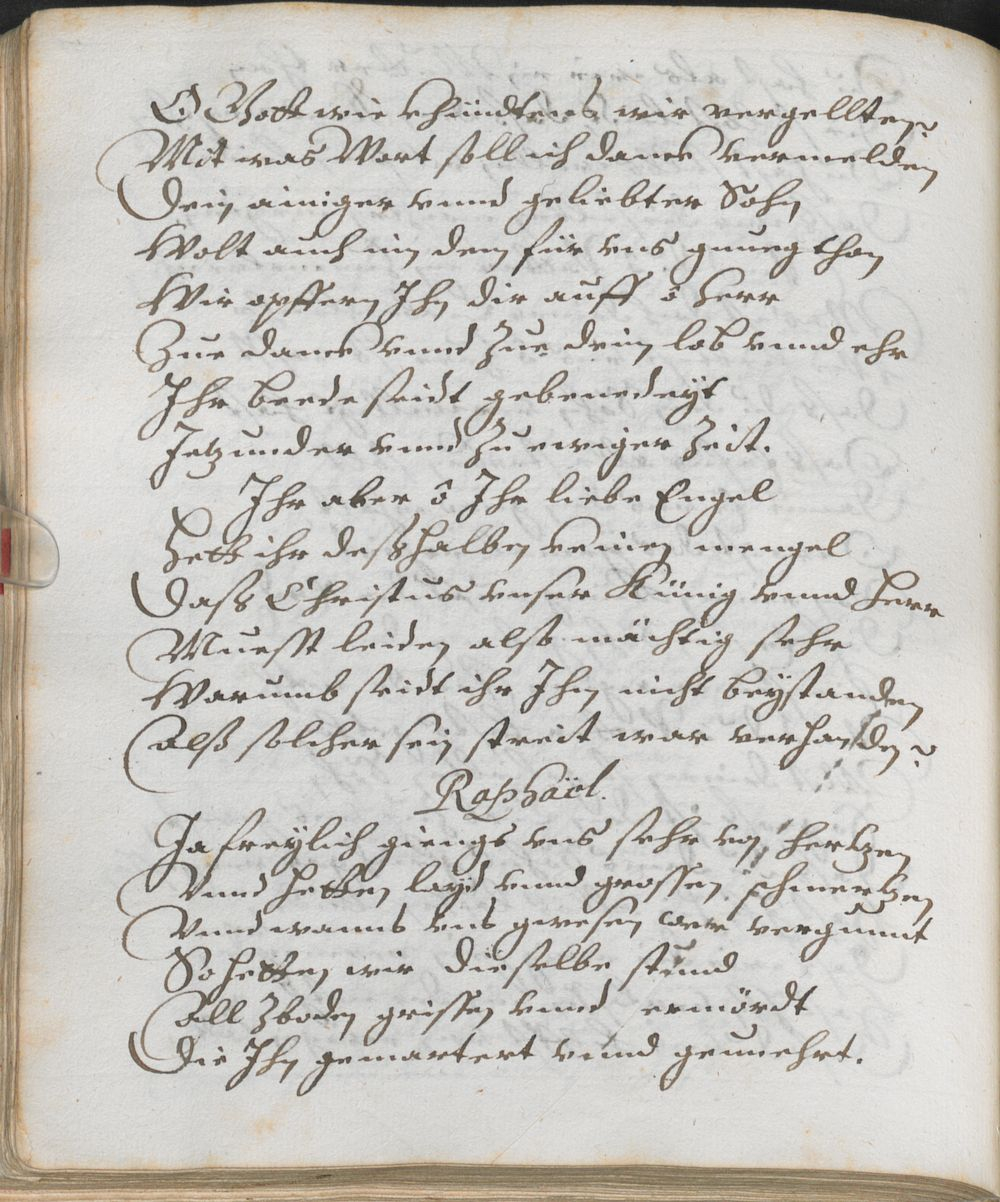 O Gott wie khündtens wir vergellten?
Mit was Wort soll ich danck vermelden
Dein ainiger vnnd geliebter Sohn
Wolt auch in dem für vns gnueg thon
Wir opffern Ihn dir auff ô Herr
Zue danck vnnd Zue deim lob vnnd ehr
Ihr beede seidt gebenedeyt
Jetzunder vnnd Zu ewiger Zeit.
Ihr aber ô Ihr liebe Engel
Hett ihr desshalben keinen mengel
Dass Christus vnser Künig vnnd Herr
Muesst leiden also mächtig sehr
Warumb seidt ihr Ihm nicht beystanden
Alss solcher sein streit war verhanden?
Raphaël.
Ja freylich giengs vns sehr von hertzen
Vnnd hetten layd vnnd grossen schmertzen
Vnnd wanns vns gwesen wer vergunnt
So hetten wir dieselbe stund
All Zboden grissen vnnd ermördt
Die Ihn gemartert vnnd geunehrt.